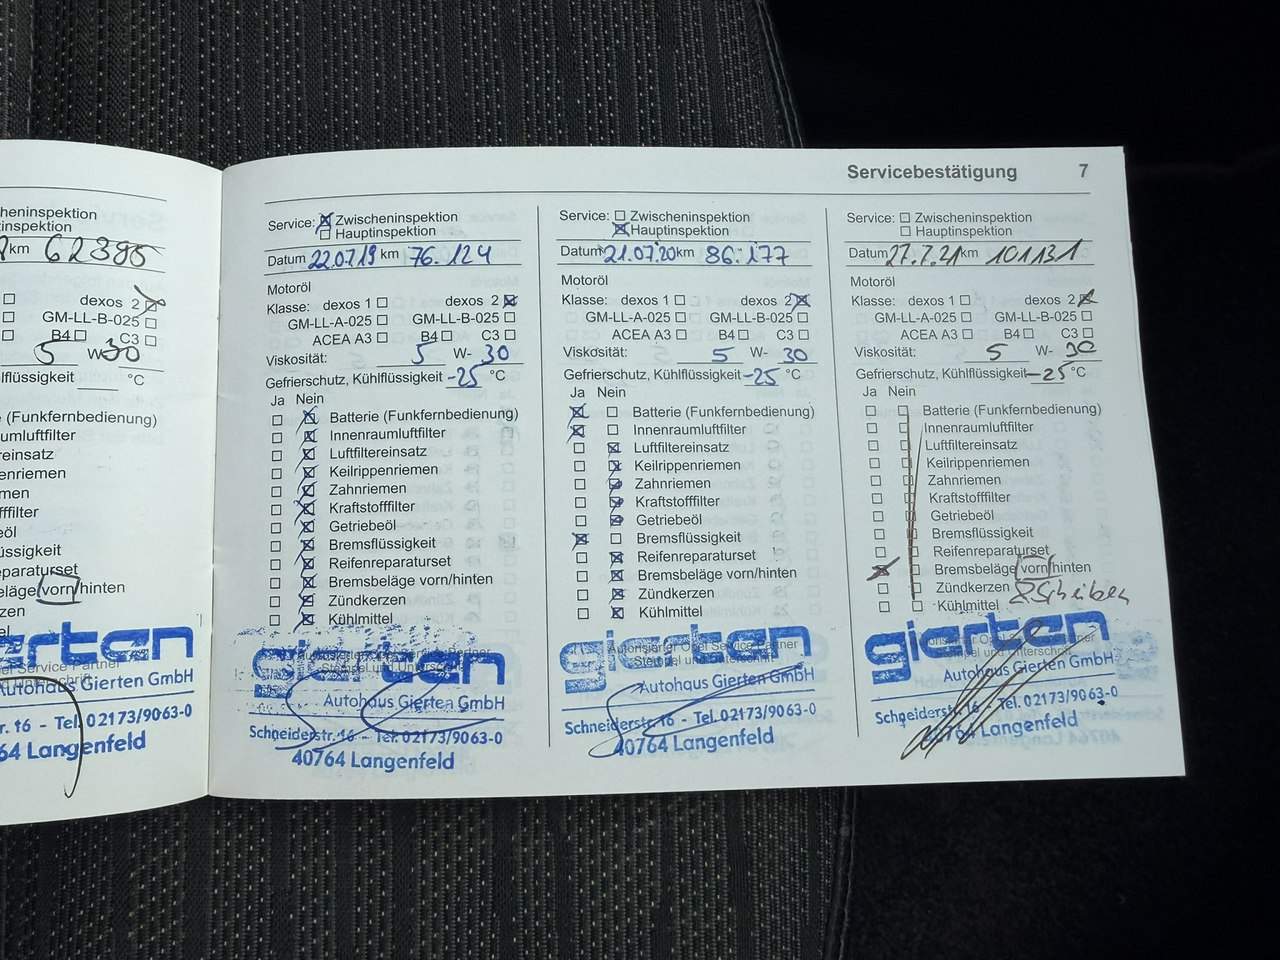 Servicebestätigung 7
heninspektion
inspektion
km 62395
dexos 2
GM-LL-B-025
B4 C3
5 W-30
lflüssigkeit °C
(Funkfernbedienung)
umluftfilter
ereinsatz
enriemen
men
fffilter
eöl
üssigkeit
eparaturset
eläge vorn/hinten
zen
el
erten
er Service Partner
Autohaus Gierten GmbH
r. 16 - Tel. 02173/9063-0
64 Langenfeld
Service: Zwischeninspektion
Hauptinspektion
Datum 22.07.19 km 76.124
Motoröl
Klasse: dexos 1 dexos 2
GM-LL-A-025 GM-LL-B-025
ACEA A3 B4 C3
Viskosität: 5 W- 30
Gefrierschutz, Kühlflüssigkeit -25 °C
Ja Nein
Batterie (Funkfernbedienung)
Innenraumluftfilter
Luftfiltereinsatz
Keilrippenriemen
Zahnriemen
Kraftstofffilter
Getriebeöl
Bremsflüssigkeit
Reifenreparaturset
Bremsbeläge vorn/hinten
Zündkerzen
Kühlmittel
gierten
Autorisierter Opel Service Partner
Stempel und Unterschrift
Autohaus Gierten GmbH
Schneiderstr. 16 - Tel. 02173/9063-0
40764 Langenfeld
Service: Zwischeninspektion
Hauptinspektion
Datum 21.07.20 km 86.177
Motoröl
Klasse: dexos 1 dexos 2
GM-LL-A-025 GM-LL-B-025
ACEA A3 B4 C3
Viskosität: 5 W- 30
Gefrierschutz, Kühlflüssigkeit -25 °C
Ja Nein
Batterie (Funkfernbedienung)
Innenraumluftfilter
Luftfiltereinsatz
Keilrippenriemen
Zahnriemen
Kraftstofffilter
Getriebeöl
Bremsflüssigkeit
Reifenreparaturset
Bremsbeläge vorn/hinten
Zündkerzen
Kühlmittel
gierten
Autorisierter Opel Service Partner
Stempel und Unterschrift
Autohaus Gierten GmbH
Schneiderstr. 16 - Tel. 02173/9063-0
40764 Langenfeld
Service: Zwischeninspektion
Hauptinspektion
Datum 27.7.21 km 101131
Motoröl
Klasse: dexos 1 dexos 2
GM-LL-A-025 GM-LL-B-025
ACEA A3 B4 C3
Viskosität: 5 W- 30
Gefrierschutz, Kühlflüssigkeit -25 °C
Ja Nein
Batterie (Funkfernbedienung)
Innenraumluftfilter
Luftfiltereinsatz
Keilrippenriemen
Zahnriemen
Kraftstofffilter
Getriebeöl
Bremsflüssigkeit
Reifenreparaturset
Bremsbeläge vorn/hinten
Zündkerzen
Kühlmittel Scheiben
gierten
Autorisierter Opel Service Partner
Stempel und Unterschrift
Autohaus Gierten GmbH
Schneiderstr. 16 - Tel. 02173/9063-0
40764 Langenfeld